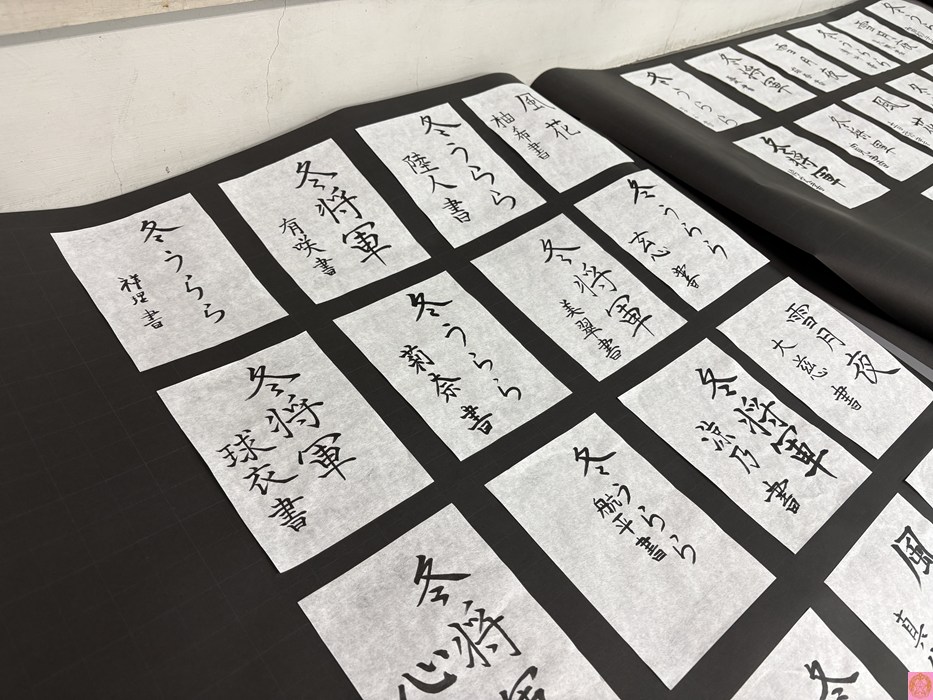 冬うらら
祥理書
冬将軍
有咲書
冬うらら
陸人書
風花
柚希書
冬将軍
球衣書
冬うらら
菊奈書
冬将軍
美翠書
冬うらら
玄書
冬将軍
心
冬うらら
航平書
冬将軍
涼乃書
雪月夜
大慈書
冬
風
真
冬うらら
冬将軍
雪月夜
冬うらら
雪月夜
冬うらら
冬将軍
冬将軍
風
冬